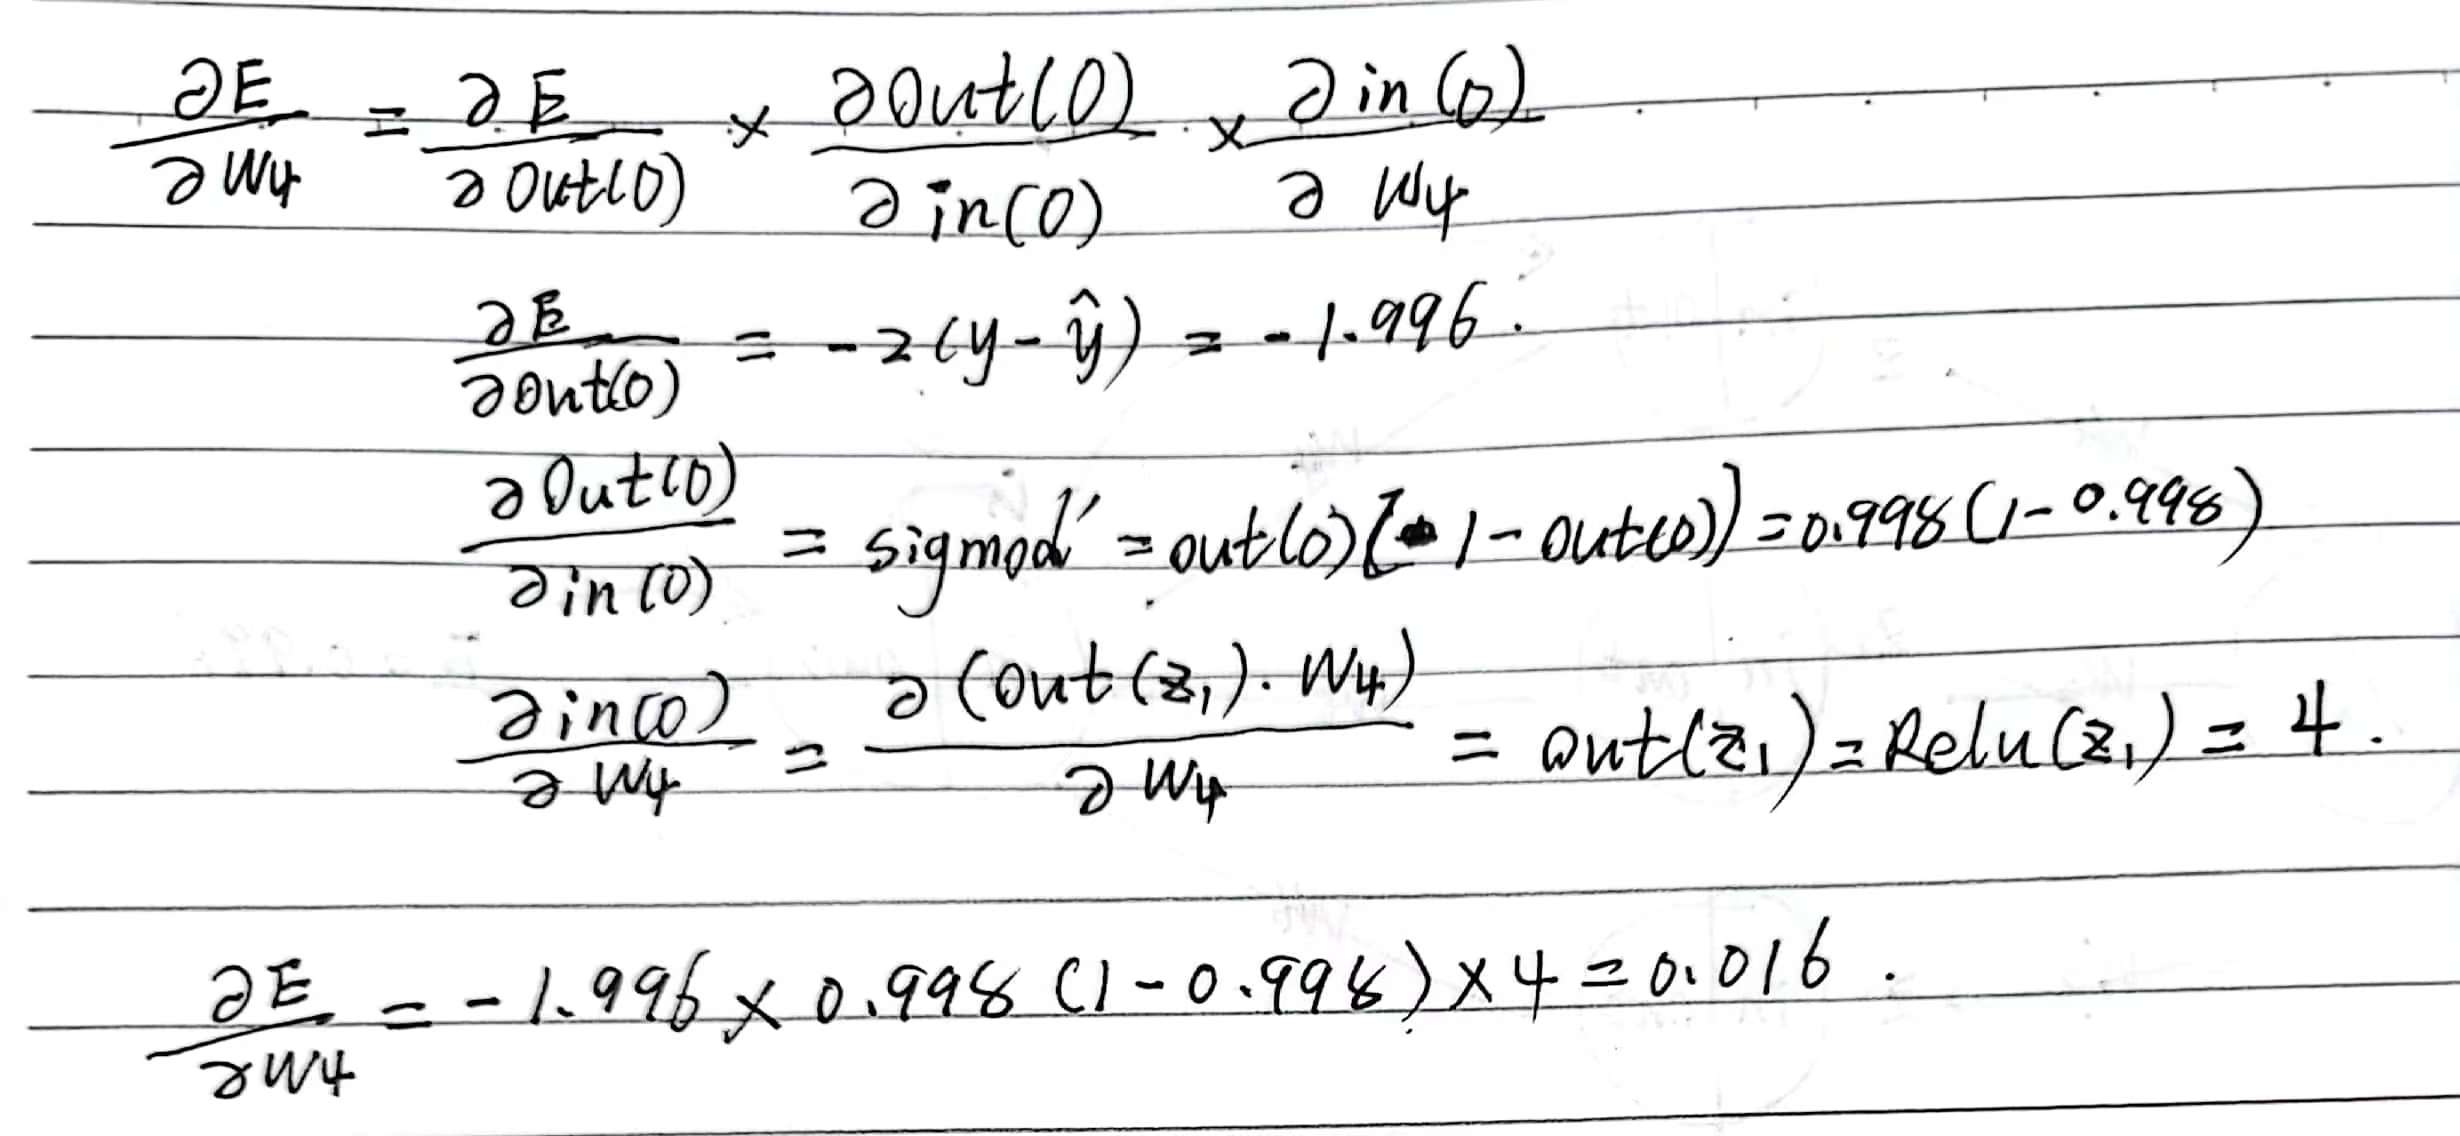 ∂E/∂W4 = ∂E/∂Out(O) × ∂Out(O)/∂in(O) × ∂in(O)/∂W4
∂E/∂Out(O) = -2(y-ŷ) = -1.996.
∂Out(O)/∂in(O) = sigmod' = out(O)[1-out(O)] = 0.998(1-0.998)
∂in(O)/∂W4 = ∂(Out(z₁)·W4)/∂W4 = out(z₁) = Relu(z₁) = 4.
∂E/∂W4 = -1.996 × 0.998(1-0.998) × 4 = 0.016.